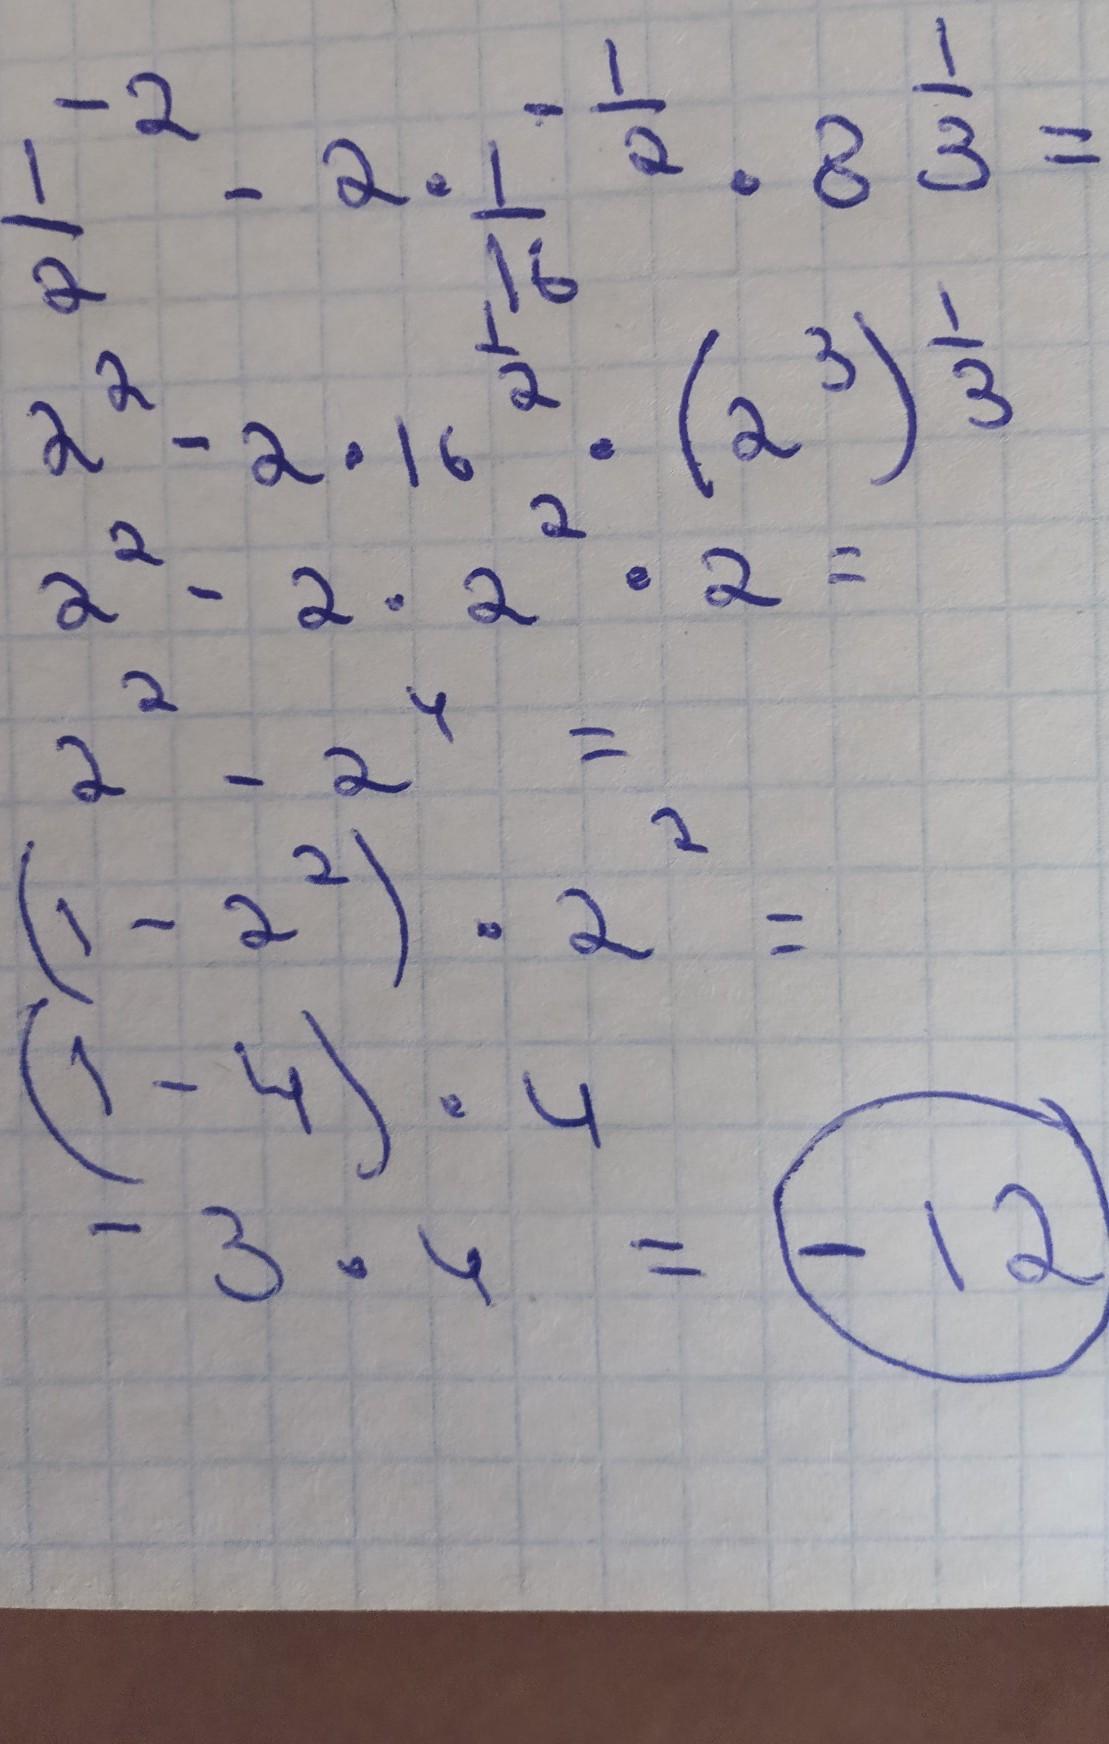 1/2^-2 - 2 · 1/16^-1/2 · 8^1/3 =
2^2 - 2 · 16^1/2 · (2^3)^1/3
2^2 - 2 · 2^2 · 2 =
2^2 - 2^4 =
(1 - 2^2) · 2^2 =
(1 - 4) · 4
- 3 · 4 = -12